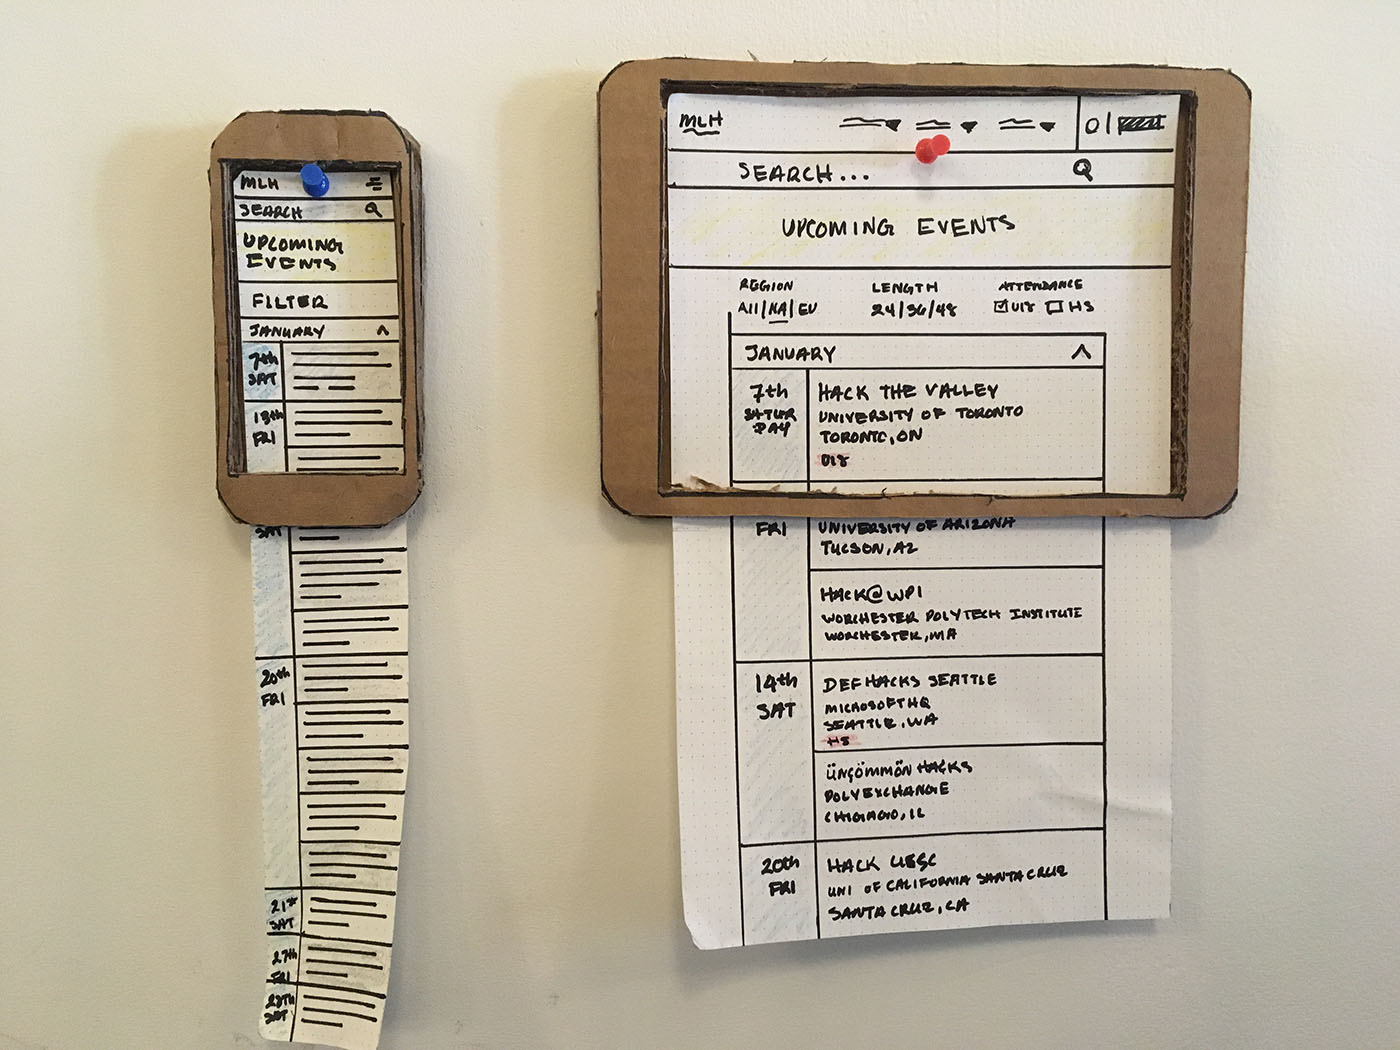 MLH
SEARCH
UPCOMING
EVENTS
FILTER
JANUARY
7th
SAT
13th
FRI
SAT
20th
FRI
21st
SAT
27th
FRI
28th
SAT
MLH
SEARCH...
UPCOMING EVENTS
REGION LENGTH ATTENDANCE
All/NA/EU 24/36/48 U18 HS
JANUARY
7th
SATUR
DAY
HACK THE VALLEY
UNIVERSITY OF TORONTO
TORONTO, ON
U18
FRI
UNIVERSITY OF ARIZONA
TUCSON, AZ
HACK@WPI
WORCHESTER POLYTECH INSTITUTE
WORCHESTER, MA
14th
SAT
DEFHACKS SEATTLE
MICROSOFT HQ
SEATTLE, WA
HS
ÜNÇÖMMÖN HACKS
POLYEXCHANGE
CHICAGO, IL
20th
FRI
HACK UCSC
UNI OF CALIFORNIA SANTA CRUZ
SANTA CRUZ, CA